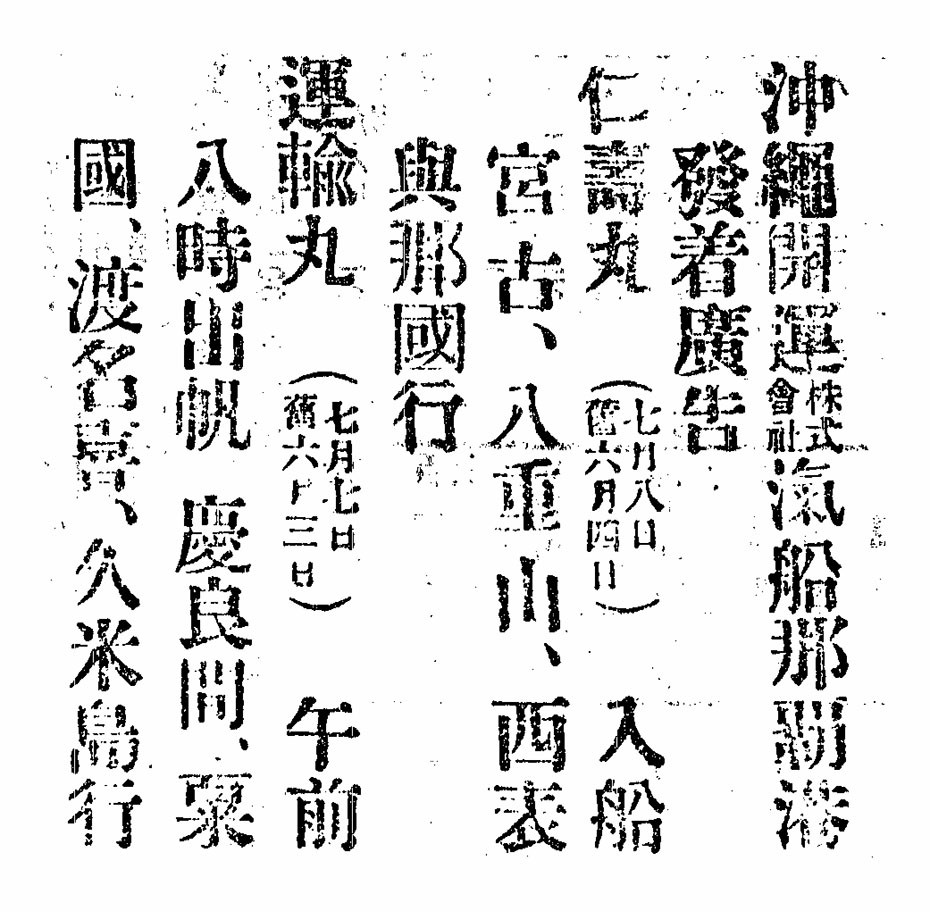 沖繩開運株式會社滊船那覇港
發着廣告
仁壽丸(七月八日舊六月四日)入船
宮古、八重山、西表
與那國行
運輸丸(七月七日舊六月三日)午前
八時出帆 慶良間、粟
國、渡名喜、久米島行